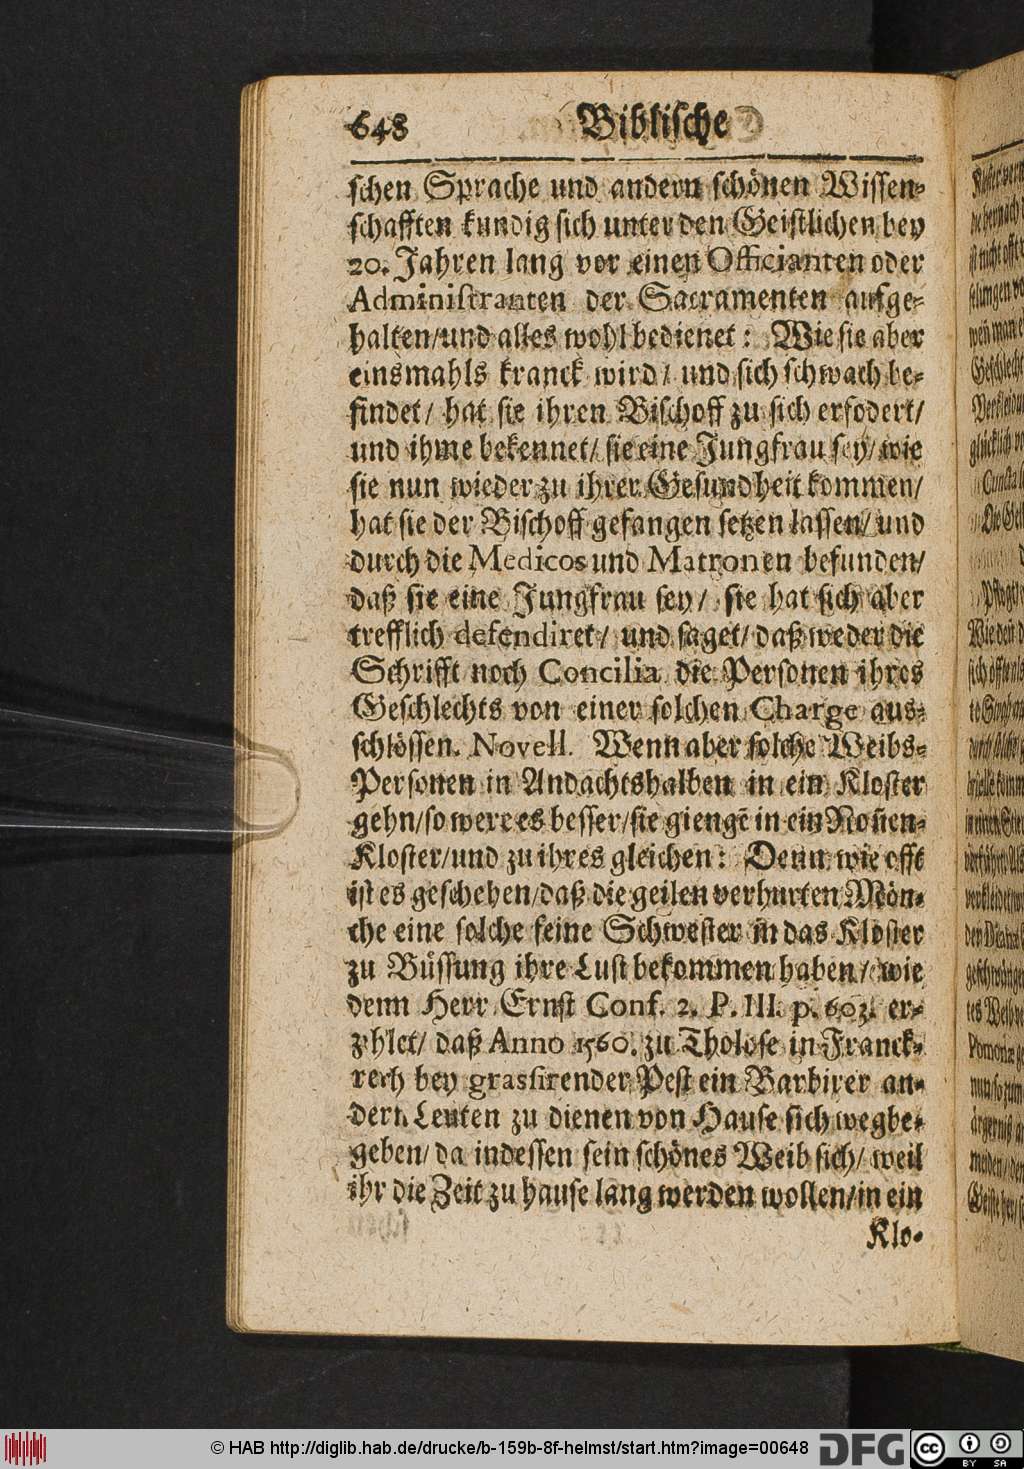 648 Biblische
schen Sprache und andern schönen Wissen-
schafften kundig sich unter den Geistlichen bey
20. Jahren lang vor einen Officianten oder
Administranten der Sacramenten aufge-
halten/und alles wohl bedienet: Wie sie aber
einsmahls kranck wird/ und sich schwach be-
findet/ hat sie ihren Bischoff zu sich erfodert/
und ihme bekennet/ sie eine Jungfrau sey/ wie
sie nun wieder zu ihrer Gesundheit kommen/
hat sie der Bischoff gefangen setzen lassen/ und
durch die Medicos und Matronen befunden/
daß sie eine Jungfrau sey/ sie hat sich aber
trefflich defendiret/ und saget/ daß weder die
Schrifft noch Concilia die Personen ihres
Geschlechts von einer solchen Charge aus-
schlössen. Novell. Wenn aber solche Weibs-
Personen in Andachtshalben in ein Kloster
gehn/so were es besser/sie giengē in ein Nonen-
Kloster/und zu ihres gleichen: Denn wie offt
ist es geschehen/daß die geilen verhurten Mön-
che eine solche feine Schwester in das Kloster
zu Büssung ihre Lust bekommen haben/ wie
denn Herr Ernst Conf. 2. P. III. p. 603. er-
zehlet/ daß Anno 1560. zu Tholose in Franck-
rech bey grassirender Pest ein Barbirer an-
dern Leuten zu dienen von Hause sich wegbe-
geben/ da indessen sein schönes Weib sich/ weil
ihr die Zeit zu hause lang werden wollen/in ein
Klo-
© HAB http://diglib.hab.de/drucke/b-159b-8f-helmst/start.htm?image=00648
DFG
cc BY SA